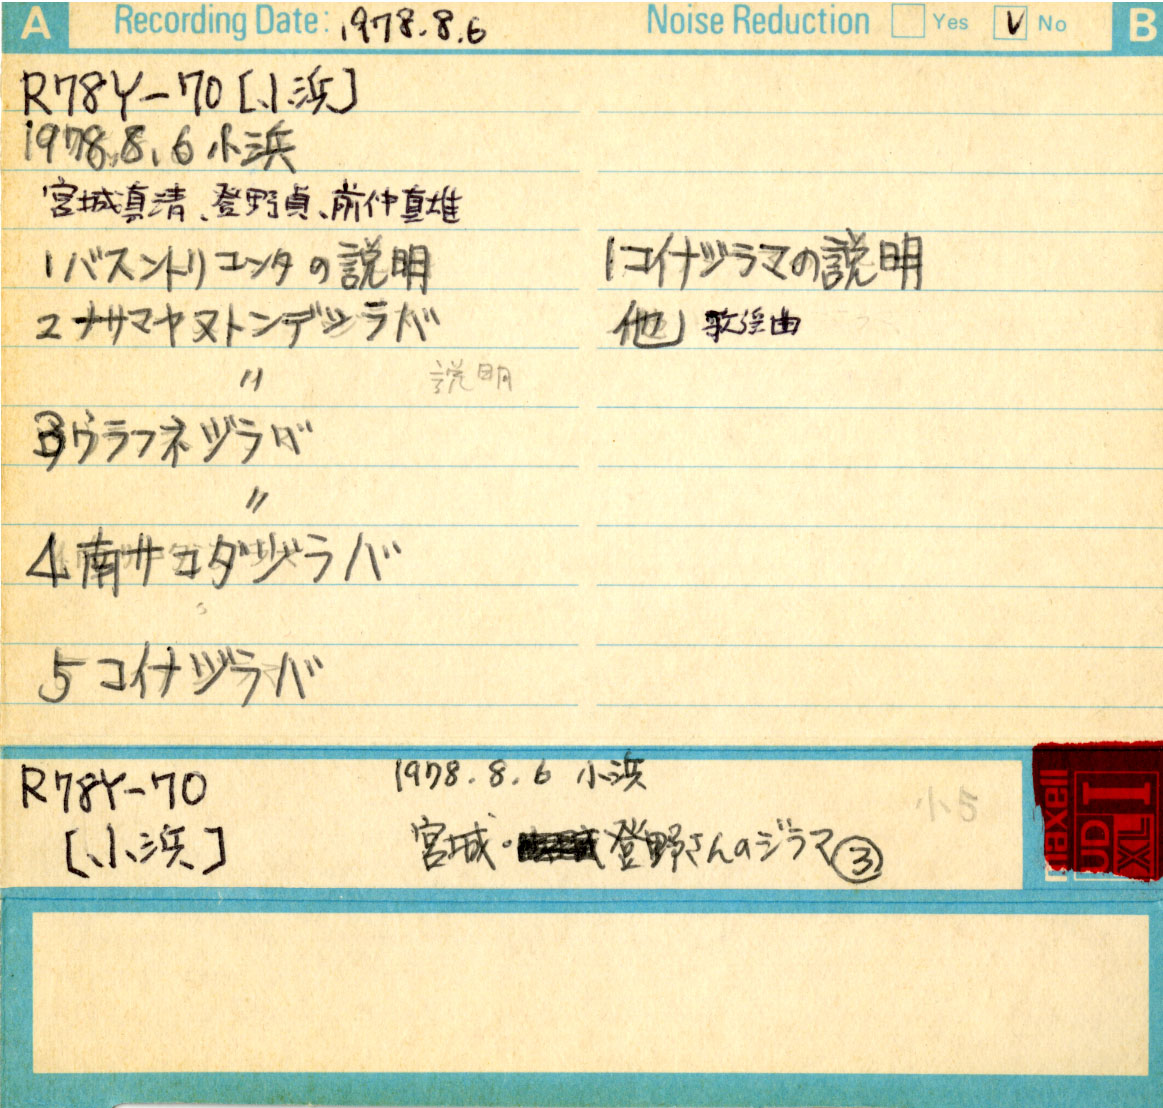 A Recording Date: 1978.8.6 Noise Reduction Yes V No B
R78Y-70 [小浜]
1978.8.6 小浜
宮城真清、登野貞、前仲直雄
1 バスントリユンタの説明
2 ナサマヤヌトンデジラバ
〃 説明
3 ウラフネヅラバ
〃
4 南サコダヅラバ
5 コイナヅラバ
1 コイナヅラマの説明
他」 歌謡曲
R78Y-70
[小浜]
1978.8.6 小浜
宮城・登野さんのジラマ③
小5
maxell
UD
XL I